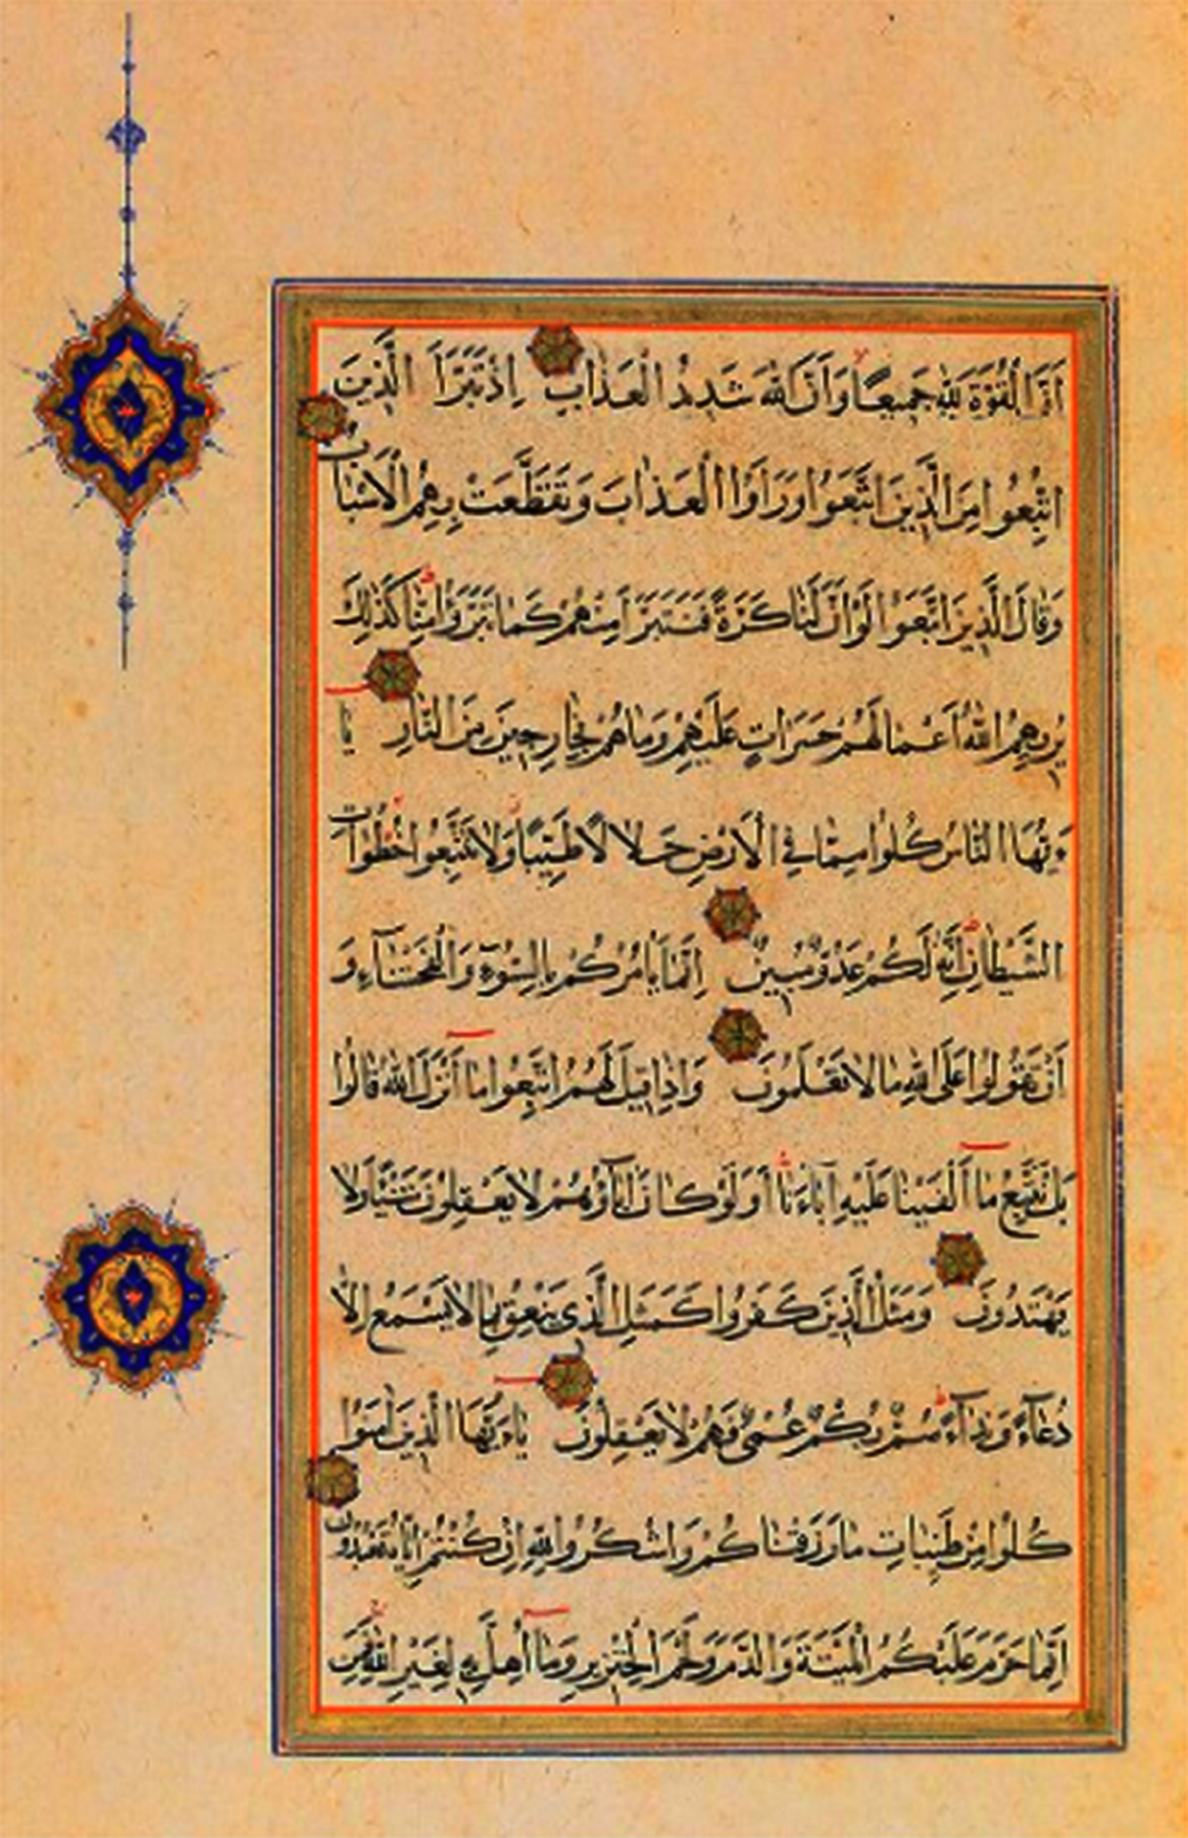 اَنَّ الْقُوَّةَ لِلّٰهِ جَمِيعًا وَاَنَّ اللّٰهَ شَدِيدُ الْعَذَابِ اِذْ تَبَرَّاَ الَّذِينَ
اتُّبِعُوا مِنَ الَّذِينَ اتَّبَعُوا وَرَاَوُا الْعَذَابَ وَتَقَطَّعَتْ بِهِمُ الْاَسْبَابُ
وَقَالَ الَّذِينَ اتَّبَعُوا لَوْ اَنَّ لَنَا كَرَّةً فَنَتَبَرَّاَ مِنْهُمْ كَمَا تَبَرَّؤُا مِنَّا كَذٰلِكَ
يُرِيهِمُ اللّٰهُ اَعْمَالَهُمْ حَسَرَاتٍ عَلَيْهِمْ وَمَا هُمْ بِخَارِجِينَ مِنَ النَّارِ يَا
ءَيُّهَا النَّاسُ كُلُوا مِمَّا فِي الْاَرْضِ حَلَالًا طَيِّبًا وَلَا تَتَّبِعُوا خُطُوَاتِ
الشَّيْطَانِ اِنَّهُ لَكُمْ عَدُوٌّ مُبِينٌ اِنَّمَا يَاْمُرُكُمْ بِالسُّوٓءِ وَالْفَحْشَآءِ وَ
اَنْ تَقُولُوا عَلَى اللّٰهِ مَا لَا تَعْلَمُونَ وَاِذَا قِيلَ لَهُمُ اتَّبِعُوا مَا اَنْزَلَ اللّٰهُ قَالُوا
بَلْ نَتَّبِعُ مَا اَلْفَيْنَا عَلَيْهِ اٰبَاءَنَا اَوَلَوْ كَانَ اٰبَآؤُهُمْ لَا يَعْقِلُونَ شَيْئًا وَلَا
يَهْتَدُونَ وَمَثَلُ الَّذِينَ كَفَرُوا كَمَثَلِ الَّذِي يَنْعِقُ بِمَا لَا يَسْمَعُ اِلَّا
دُعَآءً وَنِدَآءً صُمٌّ بُكْمٌ عُمْيٌ فَهُمْ لَا يَعْقِلُونَ يَاءَيُّهَا الَّذِينَ اٰمَنُوا
كُلُوا مِنْ طَيِّبَاتِ مَا رَزَقْنَاكُمْ وَاشْكُرُوا لِلّٰهِ اِنْ كُنْتُمْ اِيَّاهُ تَعْبُدُونَ
اِنَّمَا حَرَّمَ عَلَيْكُمُ الْمَيْتَةَ وَالدَّمَ وَلَحْمَ الْخِنْزِيرِ وَمَا اُهِلَّ بِهِ لِغَيْرِ اللّٰهِ فَمَنِ